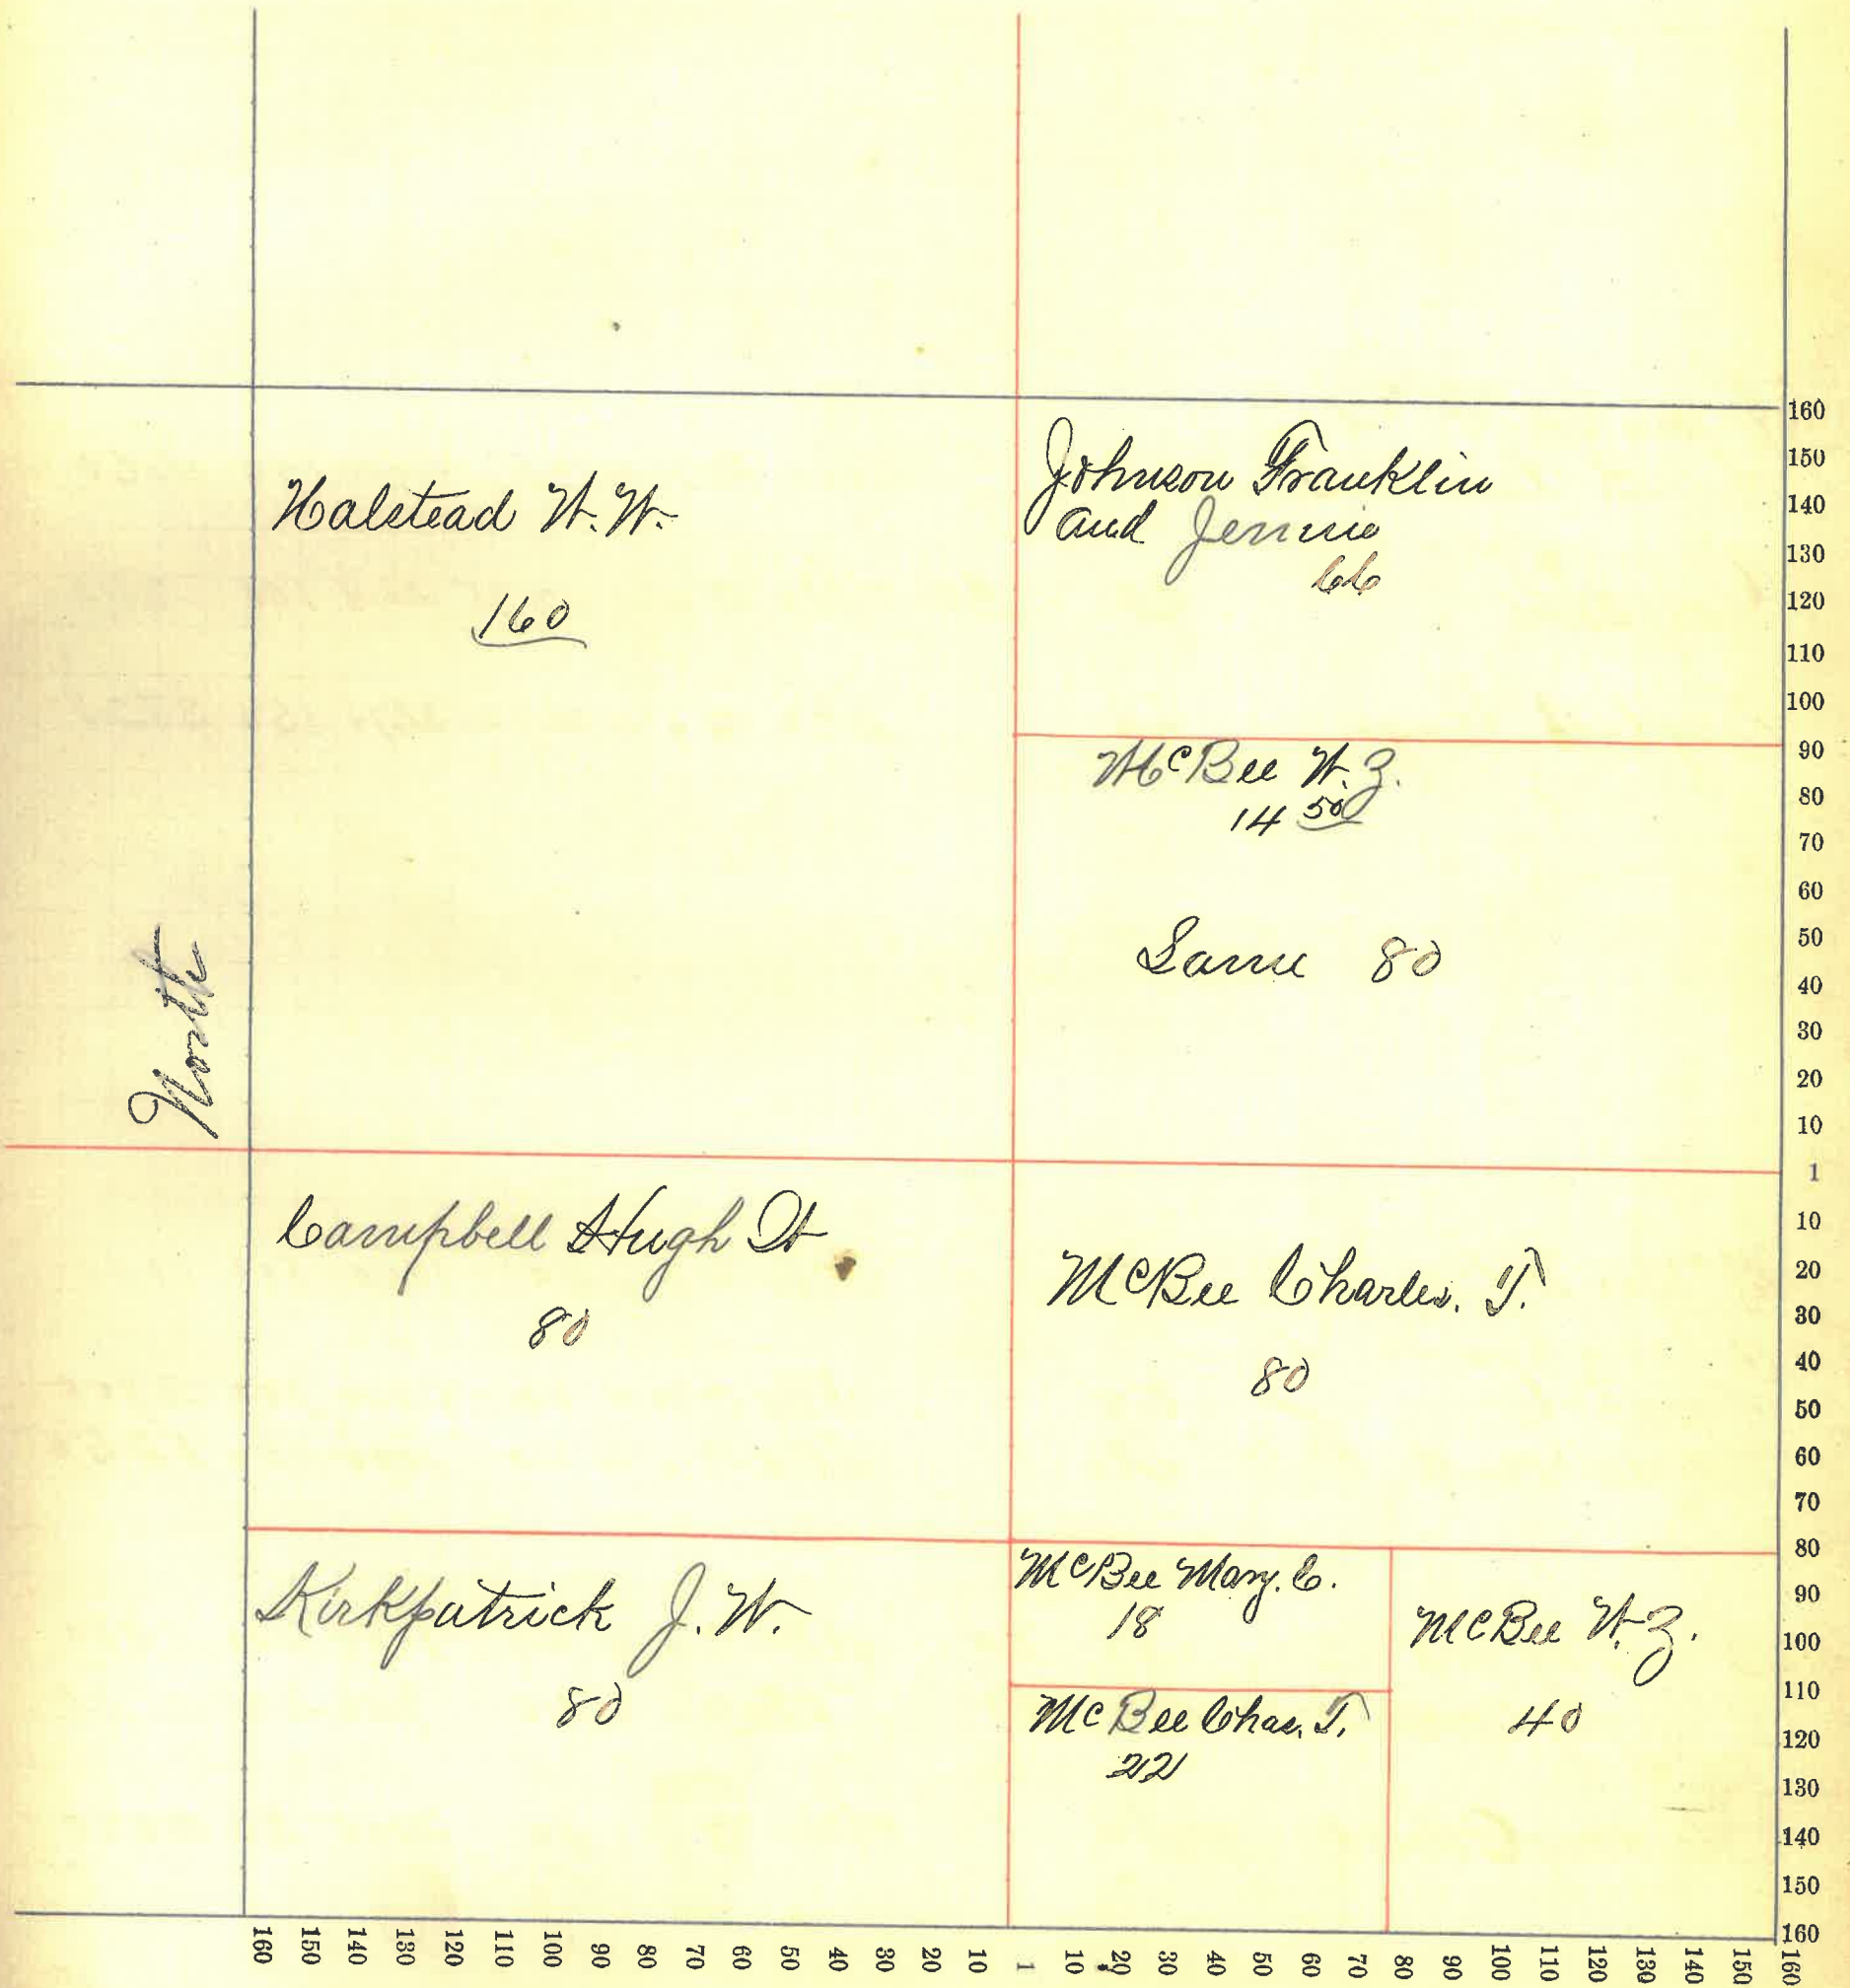 Halstead W. W.
160
Johnson Franklin
and Jennie
66
McBee W. Z.
14 50
Same 80
North
Campbell Hugh
80
McBee Charles. T.
80
Kirkpatrick J. W.
80
McBee Mary. C.
18
McBee Chas. T.
22
McBee W. Z.
40
160
150
140
130
120
110
100
90
80
70
60
50
40
30
20
10
1
10
20
30
40
50
60
70
80
90
100
110
120
130
140
150
160
160 150 140 130 120 110 100 90 80 70 60 50 40 30 20 10 1 10 20 30 40 50 60 70 80 90 100 110 120 130 140 150 160